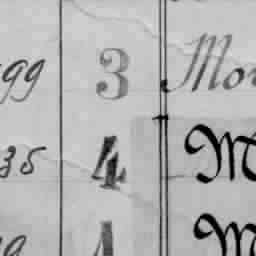 99 3 Mo
35 4 M
9 4 M